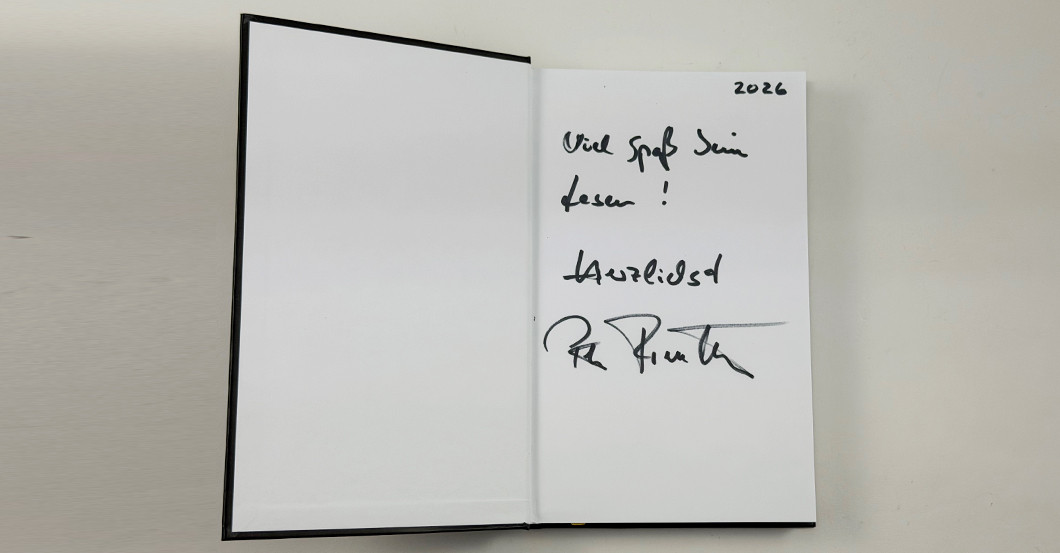 2026
Viel Spaß beim
Lesen !
Herzlichst